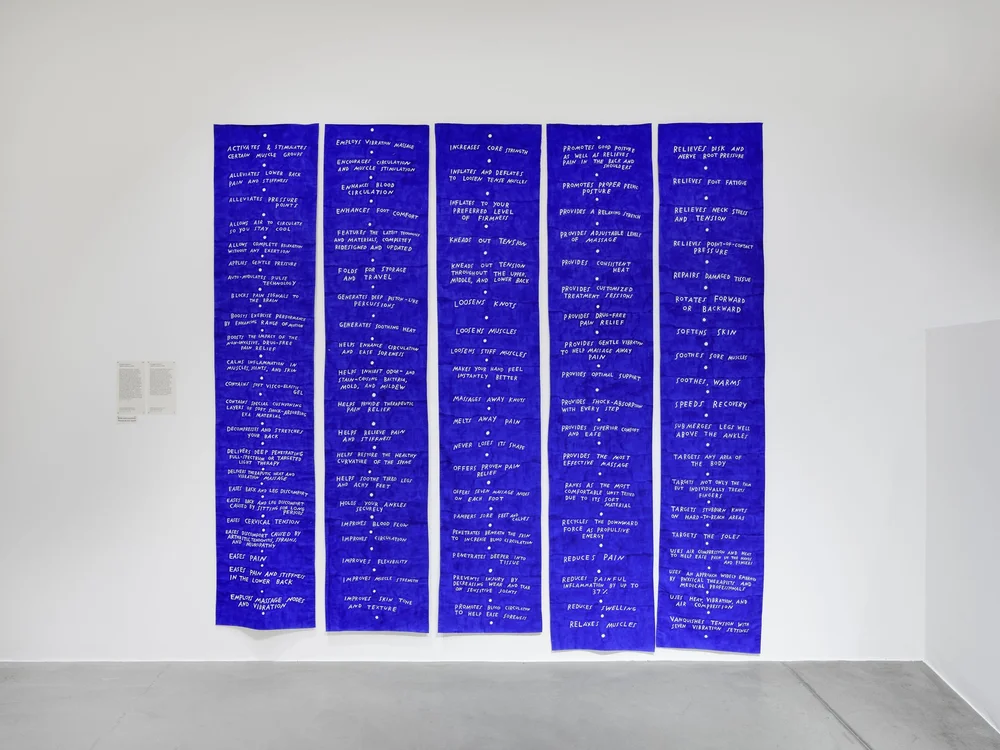 ACTIVATES & STIMULATES
CERTAIN MUSCLE GROUPS
ALLEVIATES LOWER BACK
PAIN AND STIFFNESS
ALLEVIATES PRESSURE
POINTS
ALLOWS AIR TO CIRCULATE
SO YOU STAY COOL
ALLOWS COMPLETE RELAXATION
WITHOUT ANY EXERTION
APPLIES GENTLE PRESSURE
AUTO-MODULATES PULSE
TECHNOLOGY
BLOCKS PAIN SIGNALS TO
THE BRAIN
BOOSTS EXERCISE PERFORMANCE
BY ENHANCING RANGE OF MOTION
BOOSTS THE IMPACT OF THE
NON-INVASIVE, DRUG-FREE
PAIN RELIEF
CALMS INFLAMMATION IN
MUSCLES, JOINTS, AND SKIN
CONTAINS SOFT VISCO-ELASTIC
GEL
CONTAINS SPECIAL CUSHIONING
LAYERS OF SOFT SHOCK-ABSORBING
EVA MATERIAL
DECOMPRESSES AND STRETCHES
YOUR BACK
DELIVERS DEEP PENETRATING
FULL-SPECTRUM OR TARGETED
LIGHT THERAPY
DELIVERS THERAPEUTIC HEAT AND
VIBRATION MASSAGE
EASES BACK AND LEG DISCOMFORT
EASES BACK AND LEG DISCOMFORT
CAUSED BY SITTING FOR LONG
PERIODS
EASES CERVICAL TENSION
EASES DISCOMFORT CAUSED BY
ARTHRITIS, TENDONITIS, SPRAINS,
AND NEUROPATHY
EASES PAIN
EASES PAIN AND STIFFNESS
IN THE LOWER BACK
EMPLOYS MASSAGE NODES
AND VIBRATION
EMPLOYS VIBRATION MASSAGE
ENCOURAGES CIRCULATION
AND MUSCLE STIMULATION
ENHANCES BLOOD
CIRCULATION
ENHANCES FOOT COMFORT
FEATURES THE LATEST
AND MATERIALS, COMPLETELY
REDESIGNED AND UPDATED
FOLDS FOR STORAGE
AND TRAVEL
GENERATES DEEP PISTON-LIKE
PERCUSSIONS
GENERATES SOOTHING HEAT
HELPS ENHANCE CIRCULATION
AND EASE SORENESS
HELPS INHIBIT ODOR- AND
STAIN-CAUSING BACTERIA,
MOLD, AND MILDEW
HELPS PROVIDE THERAPEUTIC
PAIN RELIEF
HELPS RELIEVE PAIN
AND STIFFNESS
HELPS RESTORE THE HEALTHY
CURVATURE OF THE SPINE
HELPS SOOTHE TIRED LEGS
AND ACHY FEET
HOLDS YOUR ANKLES
SECURELY
IMPROVES BLOOD FLOW
IMPROVES CIRCULATION
IMPROVES FLEXIBILITY
IMPROVES MUSCLE STRENGTH
IMPROVES SKIN TONE
AND TEXTURE
INCREASES CORE STRENGTH
INFLATES AND DEFLATES
TO LOOSEN TENSE MUSCLES
INFLATES TO YOUR
PREFERRED LEVEL
OF FIRMNESS
KNEADS OUT TENSION
KNEADS OUT TENSION
THROUGHOUT THE UPPER,
MIDDLE, AND LOWER BACK
LOOSENS KNOTS
LOOSENS MUSCLES
LOOSENS STIFF MUSCLES
MAKES YOUR HAND FEEL
INSTANTLY BETTER
MASSAGES AWAY KNOTS
MELTS AWAY PAIN
NEVER LOSES ITS SHAPE
OFFERS PROVEN PAIN
RELIEF
OFFERS SEVEN MASSAGE NODES
ON EACH FOOT
PAMPERS SORE FEET AND
CALVES
PENETRATES BENEATH THE SKIN
TO INCREASE BLOOD CIRCULATION
PENETRATES DEEPER INTO
TISSUE
PREVENTS INJURY BY
DECREASING WEAR AND TEAR
ON SENSITIVE JOINTS
PROMOTES BLOOD CIRCULATION
TO HELP EASE SORENESS
PROMOTES GOOD POSTURE
AS WELL AS RELIEVES
PAIN IN THE BACK AND
SHOULDERS
PROMOTES PROPER PELVIC
POSTURE
PROVIDES A RELAXING STRETCH
PROVIDES ADJUSTABLE LEVELS
OF MASSAGE
PROVIDES CONSISTENT
HEAT
PROVIDES CUSTOMIZED
TREATMENT SESSIONS
PROVIDES DRUG-FREE
PAIN RELIEF
PROVIDES GENTLE VIBRATION
TO HELP MASSAGE AWAY
PAIN
PROVIDES OPTIMAL SUPPORT
PROVIDES SHOCK-ABSORPTION
WITH EVERY STEP
PROVIDES SUPERIOR COMFORT
AND EASE
PROVIDES THE MOST
EFFECTIVE MASSAGE
RANKS AS THE MOST
COMFORTABLE WE'VE TESTED
DUE TO ITS SOFT
MATERIAL
RECYCLES THE DOWNWARD
FORCE AS PROPULSIVE
ENERGY
REDUCES PAIN
REDUCES PAINFUL
INFLAMMATION BY UP TO
37%
REDUCES SWELLING
RELAXES MUSCLES
RELIEVES DISK AND
NERVE ROOT PRESSURE
RELIEVES FOOT FATIGUE
RELIEVES NECK STRESS
AND TENSION
RELIEVES POINT-OF-CONTACT
PRESSURE
REPAIRS DAMAGED TISSUE
ROTATES FORWARD
OR BACKWARD
SOFTENS SKIN
SOOTHES SORE MUSCLES
SOOTHES, WARMS
SPEEDS RECOVERY
SUBMERGES LEGS WELL
ABOVE THE ANKLES
TARGETS ANY AREA OF
THE BODY
TARGETS NOT ONLY THE PALM
BUT INDIVIDUALLY TREATS
FINGERS
TARGETS STUBBORN KNOTS
ON HARD-TO-REACH AREAS
TARGETS THE SOLES
USES AIR COMPRESSION AND HEAT
TO HELP EASE PAIN IN THE HANDS
AND FINGERS
USES AN APPROACH WIDELY EMBRACED
BY PHYSICAL THERAPISTS AND
MEDICAL PROFESSIONALS
USES HEAT, VIBRATION, AND
AIR COMPRESSION
VANQUISHES TENSION WITH
SEVEN VIBRATION SETTINGS